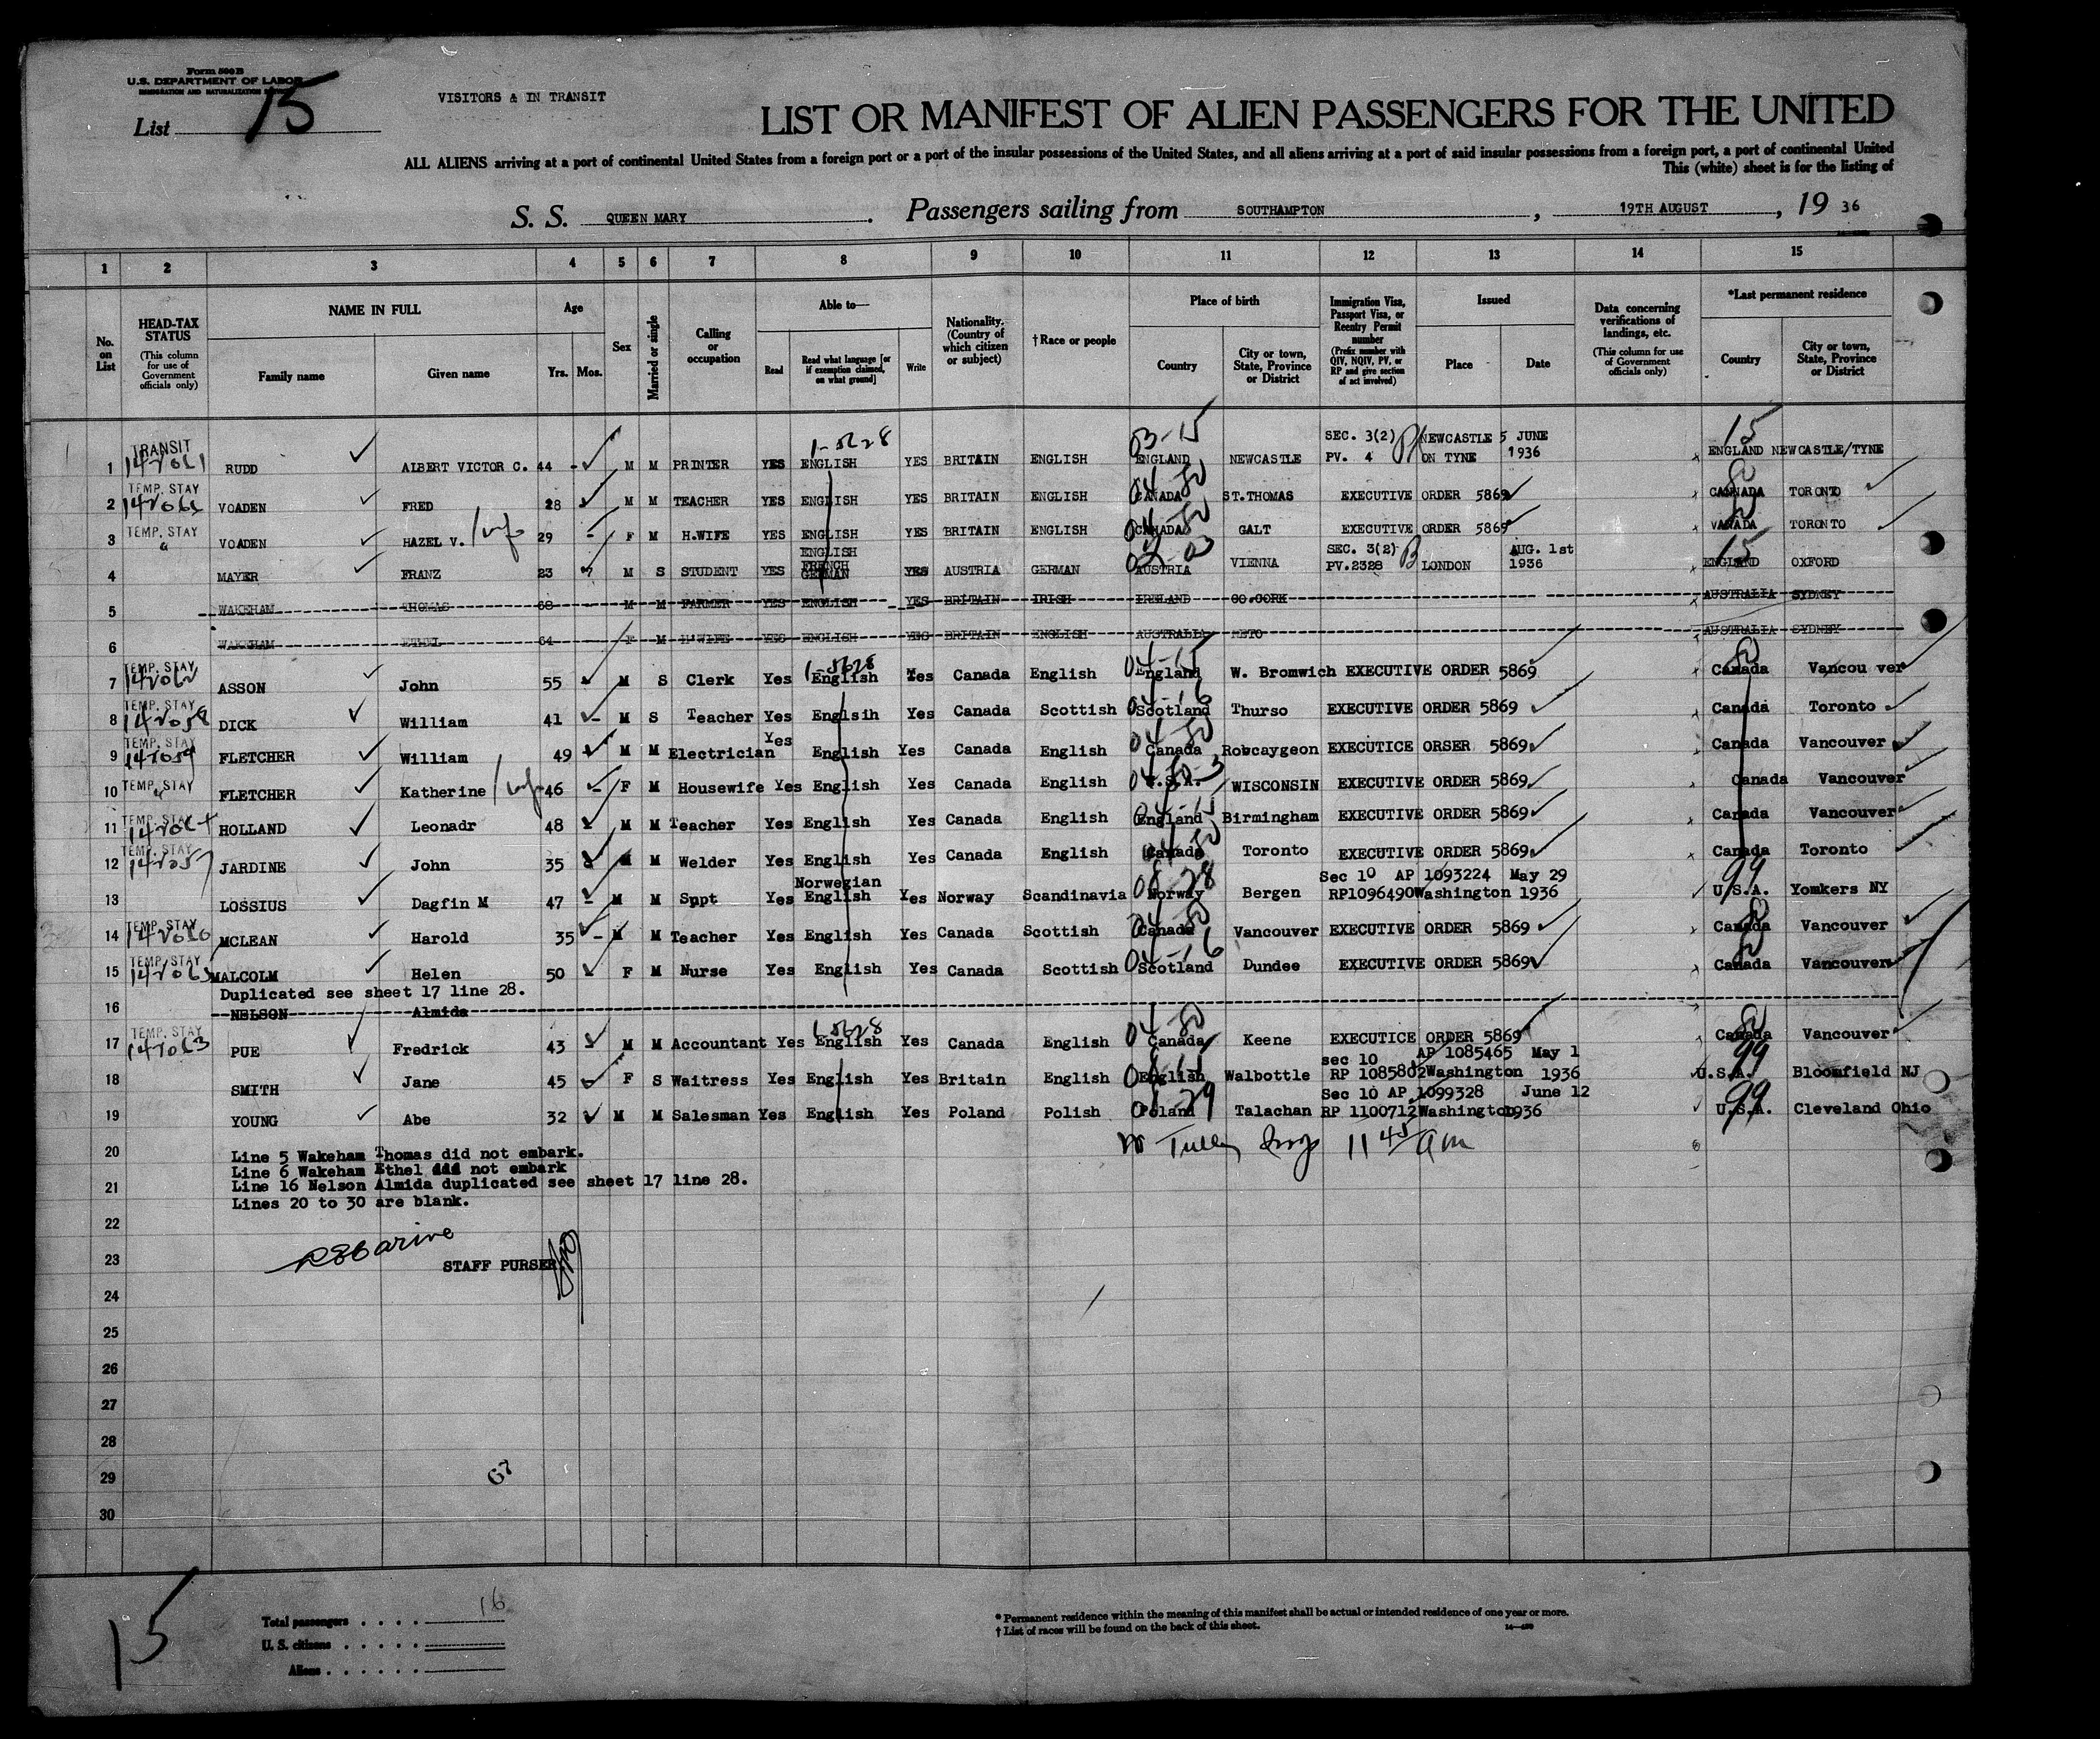 Form 500 B
U.S. DEPARTMENT OF LABOR
IMMIGRATION AND NATURALIZATION SERVICE
List 15
VISITORS & IN TRANSIT
LIST OR MANIFEST OF ALIEN PASSENGERS FOR THE UNITED
ALL ALIENS arriving at a port of continental United States from a foreign port or a port of the insular possessions of the United States, and all aliens arriving at a port of said insular possessions from a foreign port, a port of continental United
This (white) sheet is for the listing of
S. S. QUEEN MARY. Passengers sailing from SOUTHAMPTON, 19TH AUGUST, 19 36
1 2 3 4 5 6 7 8 9 10 11 12 13 14 15
No. on List
HEAD-TAX STATUS
(This column for use of Government officials only)
NAME IN FULL
Family name
Given name
Age
Yrs. Mos.
Sex
Married or single
Calling or occupation
Able to—
Read
Read what language [or if exemption claimed, on what ground]
Write
Nationality. (Country of which citizen or subject)
†Race or people
Place of birth
Country
City or town, State, Province or District
Immigration Visa, Passport Visa, or Reentry Permit number
(Prefix number with QIV, NQIV, PV, or RP and give section of act involved)
Issued
Place
Date
Data concerning verifications of landings, etc.
(This column for use of Government officials only)
*Last permanent residence
Country
City or town, State, Province or District
1 TRANSIT RUDD ALBERT VICTOR C. 44 - M M PRINTER YES ENGLISH YES BRITAIN ENGLISH ENGLAND NEWCASTLE SEC. 3(2) PV. 4 NEWCASTLE ON TYNE 5 JUNE 1936 ENGLAND NEWCASTLE/TYNE
2 TEMP. STAY VOADEN FRED 28 M M TEACHER YES ENGLISH YES BRITAIN ENGLISH CANADA ST.THOMAS EXECUTIVE ORDER 5869 CANADA TORONTO
3 TEMP. STAY VOADEN HAZEL V. 29 - F M H.WIFE YES ENGLISH YES BRITAIN ENGLISH CANADA GALT EXECUTIVE ORDER 5869 VANADA TORONTO
4 MAYER FRANZ 23 M S STUDENT YES ENGLISH FRENCH GERMAN YES AUSTRIA GERMAN AUSTRIA VIENNA SEC. 3(2) PV.2328 LONDON AUG. 1st 1936 ENGLAND OXFORD
5 WAKEHAM THOMAS 68 - M M FARMER YES ENGLISH YES BRITAIN IRISH IRELAND CO.CORK AUSTRALIA SYDNEY
6 WAKEHAM ETHEL 64 F M H'WIFE YES ENGLISH YES BRITAIN ENGLISH AUSTRALIA SYDNEY
7 TEMP. STAY ASSON John 55 M S Clerk Yes English Yes Canada English England W. Bromwich EXECUTIVE ORDER 5869 Canada Vancou ver
8 TEMP. STAY DICK William 41 - M S Teacher Yes Englsih Yes Canada Scottish Scotland Thurso EXECUTIVE ORDER 5869 Canada Toronto
9 TEMP. STAY FLETCHER William 49 M M Electrician Yes English Yes Canada English Canada Robcaygeon EXECUTICE ORSER 5869 Canada Vancouver
10 TEMP. STAY FLETCHER Katherine 46 - F M Housewife Yes English Yes Canada English U.S.A. WISCONSIN EXECUTIVE ORDER 5869 Canada Vancouver
11 TEMP. STAY HOLLAND Leonadr 48 M M Teacher Yes English Yes Canada English England Birmingham EXECUTIVE ORDER 5869 Canada Vancouver
12 TEMP. STAY JARDINE John 35 M M Welder Yes English Yes Canada English Canada Toronto EXECUTIVE ORDER 5869 Canada Toronto
13 LOSSIUS Dagfin M 47 - M M Supt Yes Norwegian English Yes Norway Scandinavia Norway Bergen Sec 10 AP 1093224 RP1096490 Washington May 29 1936 U.S.A. Yomkers NY
14 TEMP. STAY MCLEAN Harold 35 - M M Teacher Yes English Yes Canada Scottish Canada Vancouver EXECUTIVE ORDER 5869 Canada Vancouver
15 TEMP. STAY MALCOLM Helen 50 F M Nurse Yes English Yes Canada Scottish Scotland Dundee EXECUTIVE ORDER 5869 Canada Vancouver
Duplicated see sheet 17 line 28.
16 NELSON Almida
17 TEMP. STAY PUE Fredrick 43 M M Accountant Yes English Yes Canada English Canada Keene EXECUTICE ORDER 5869 Canada Vancouver
18 SMITH Jane 45 F S Waitress Yes English Yes Britain English English Walbottle sec 10 AP 1085465 RP 1085802 Washington May 1 1936 U.S.A. Bloomfield NJ
19 YOUNG Abe 32 M M Salesman Yes English Yes Poland Polish Poland Talachan Sec 10 AP 1099328 RP 1100712 Washington June 12 1936 U.S.A. Cleveland Ohio
11 45 am
20 Line 5 Wakeham Thomas did not embark.
Line 6 Wakeham Ethel did not embark
21 Line 16 Nelson Almida duplicated see sheet 17 line 28.
Lines 20 to 30 are blank.
22
23 STAFF PURSER
24
25
26
27
28
29 67
30
15
Total passengers . . . . 16
U. S. citizens . . . . .
Aliens . . . . . .
* Permanent residence within the meaning of this manifest shall be actual or intended residence of one year or more.
† List of races will be found on the back of this sheet.